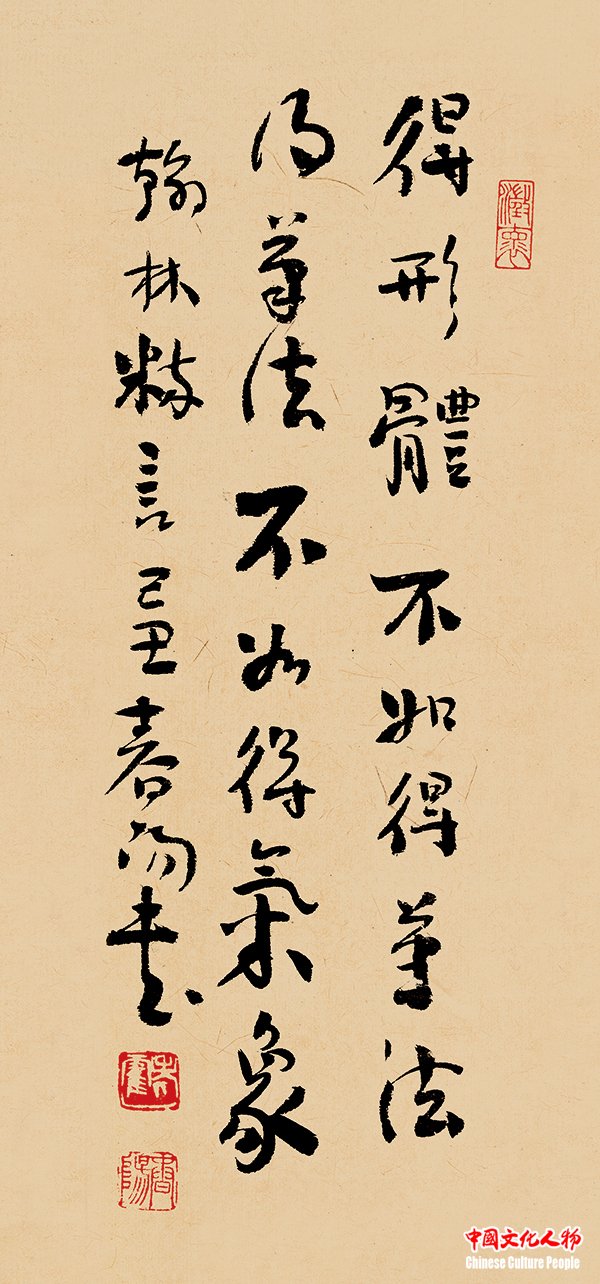 澄懷
得形體不如得筆法
得筆法不如得氣象
翰林粹言己丑春陽書
中國文化人物
Chinese Culture People